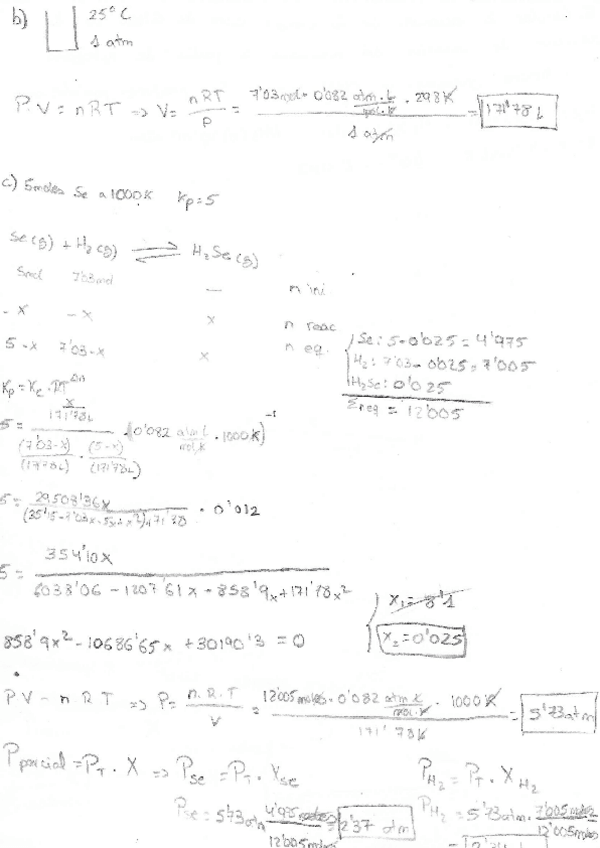 b) 25° C
1 atm
P.V = nRT => V = nRT / P = 7'03 mol · 0'082 atm·L/mol·K · 298K / 1 atm = 171'78 L
c) 5 moles Se a 1000K Kp = 5
Se(g) + H2(g) ⇌ H2Se(g)
5mol 7'03mol — n ini
-x -x x n reac
5-x 7'03-x x n eq.
Se: 5-0'025 = 4'975
H2: 7'03-0'025 = 7'005
H2Se: 0'025
Σneq = 12'005
Kp = Kc · RT^Δn
5 = (x / 171'78L) / ((7'03-x)/(171'78L) · (5-x)/(171'78L)) · (0'082 atm·L/mol·K · 1000K)^-1
5 = 29508'36x / · 0'012
5 = 354'10x / 6038'06 - 1207'61x - 858'9x + 171'78x²
858'9x² - 10686'65x + 30190'3 = 0
x1 = 8'1
x2 = 0'025
PV = n.R.T => P = n.R.T / V = 12'005 moles · 0'082 atm·L/mol·K · 1000K / 171'78L = 5'73 atm
P parcial = PT · X => PSe = PT · XSe
PH2 = PT · XH2
PSe = 5'73 atm · 4'975 moles / 12'005 moles = 2'37 atm
PH2 = 5'73 atm · 7'005 moles / 12'005 moles